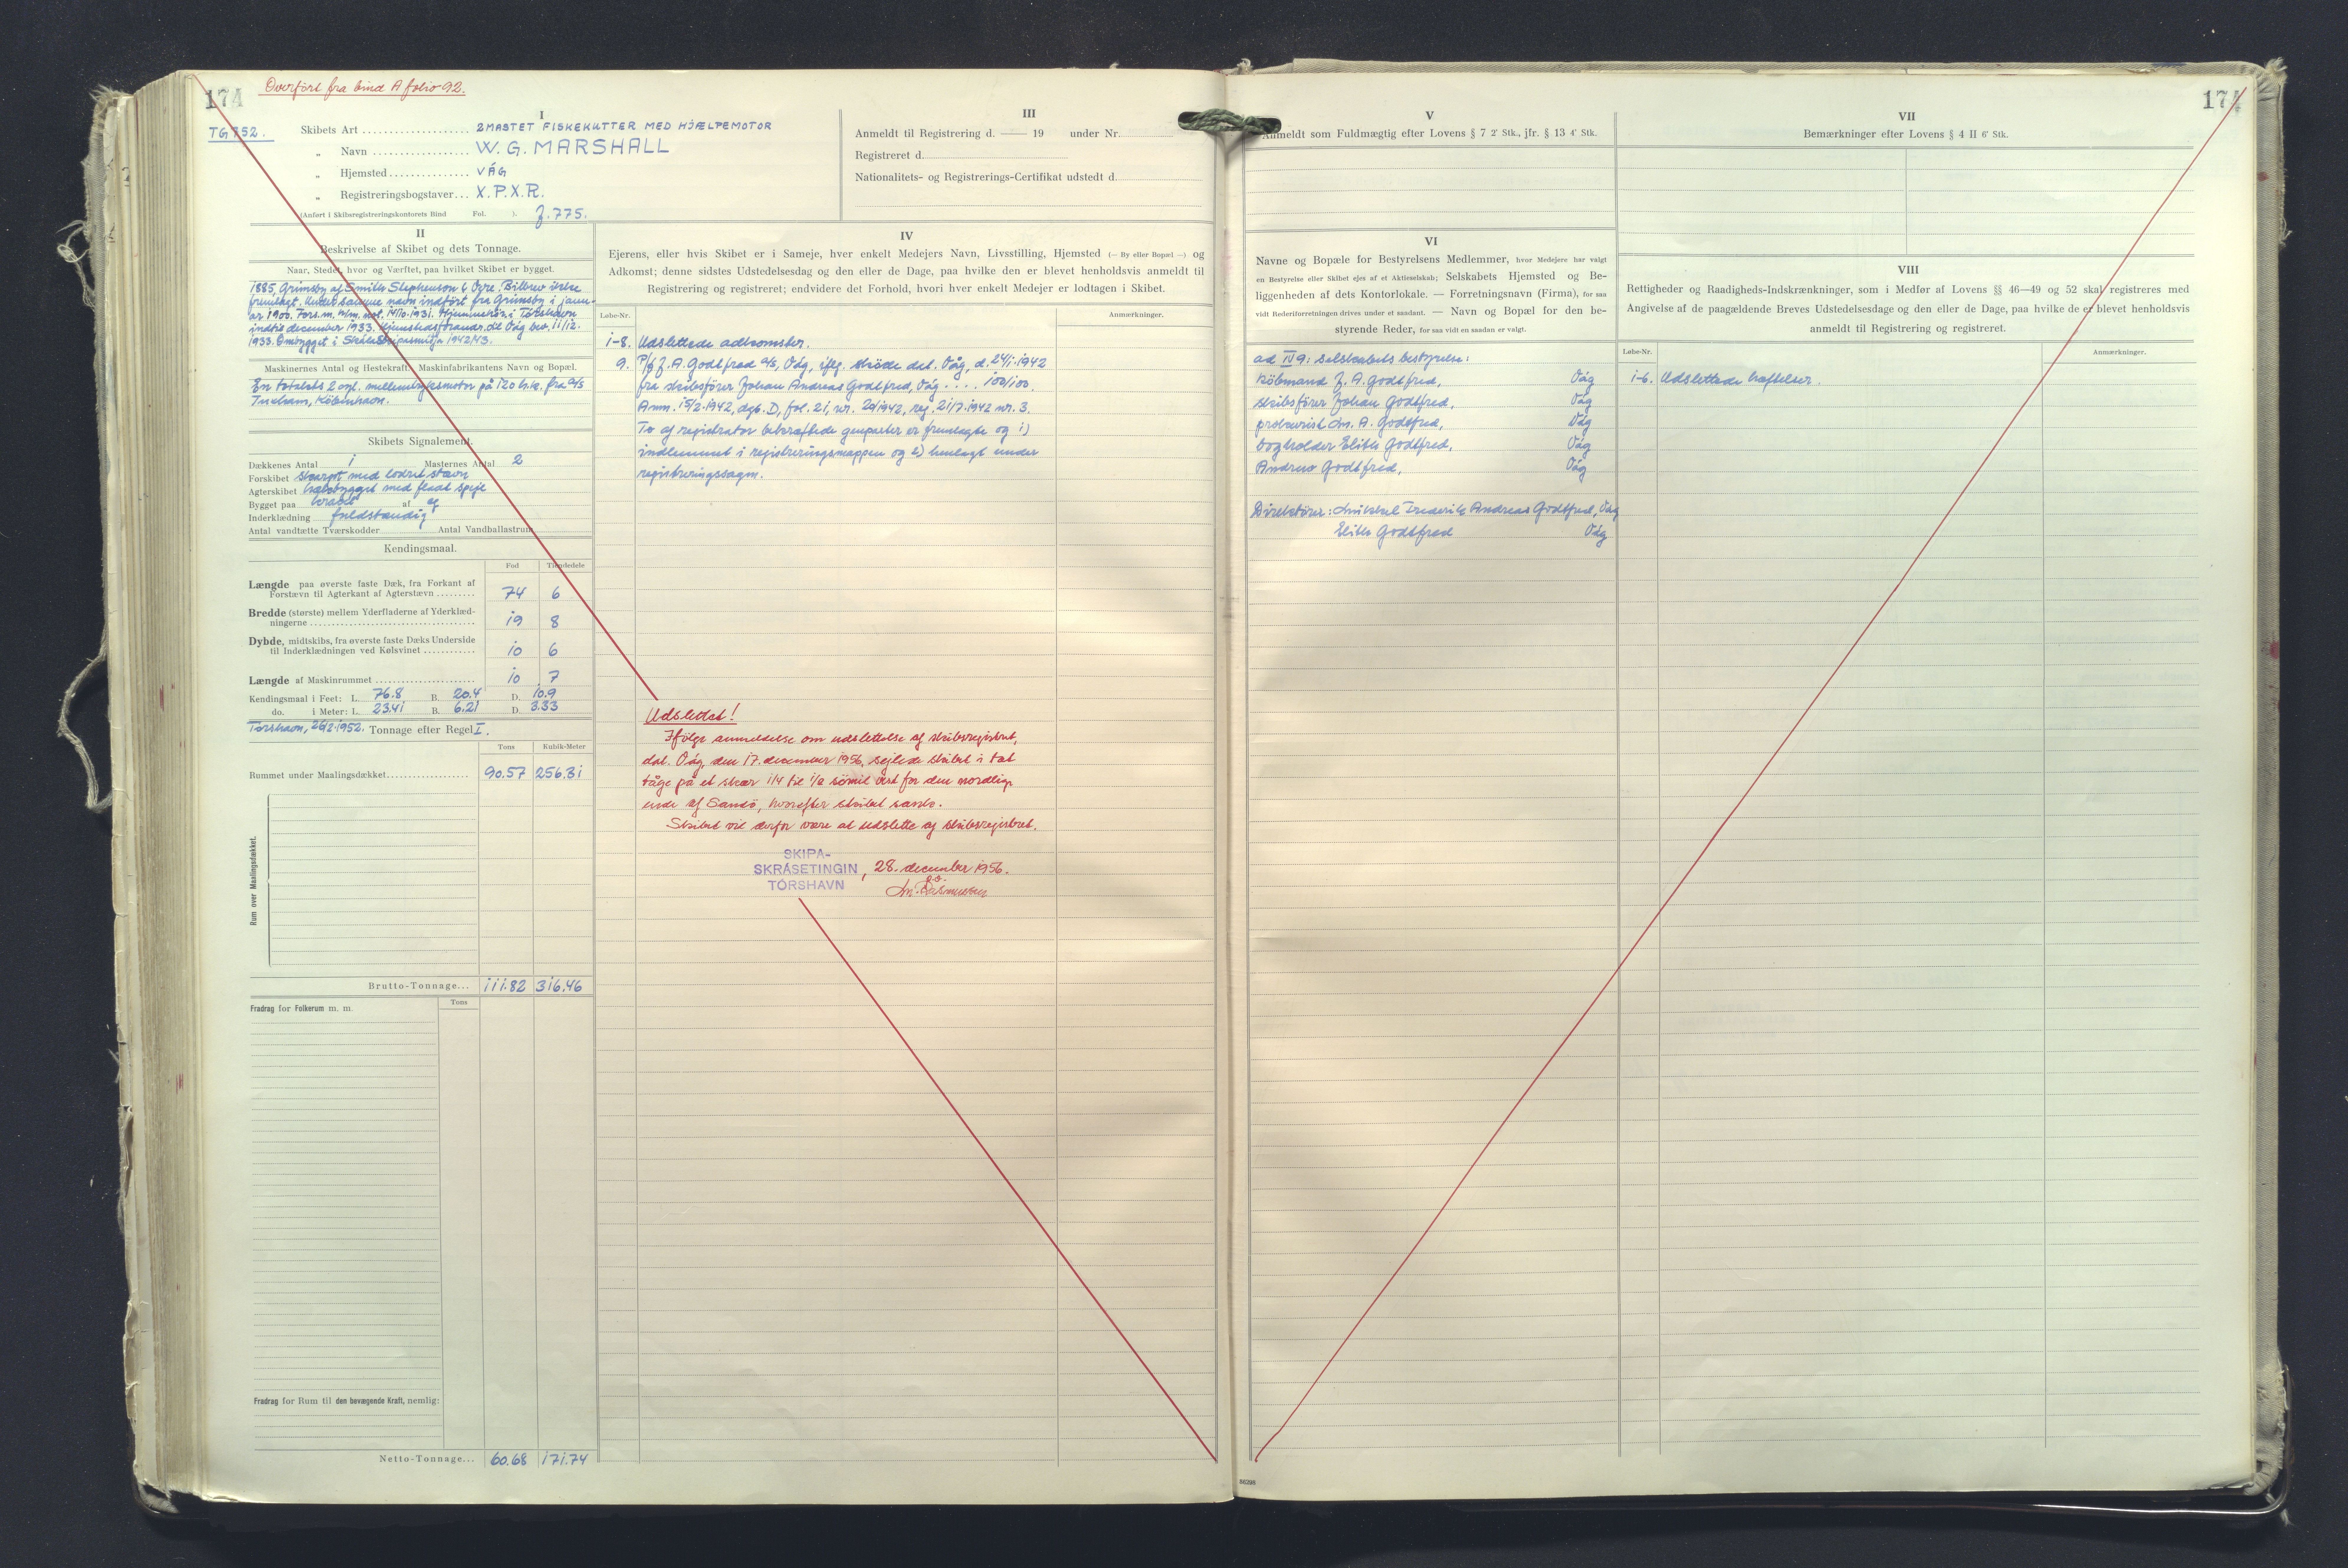 174
Overført fra bind A folio 92.
TG 752.
I
Skibets Art 2MASTET FISKEKUTTER MED HJÆLPEMOTOR
" Navn W. G. MARSHALL
" Hjemsted VÁG
" Registreringsbogstaver X.P.X.R.
(Anført i Skibsregistreringskontorets Bind Fol. ). J. 775.
II
Beskrivelse af Skibet og dets Tonnage.
Naar, Stedet, hvor og Værftet, paa hvilket Skibet er bygget.
1885, Grimsby af Smith Stephenson & Ogre. Bilbrev ikke
fremlagt. Under samme navn indført fra Grimsby i janu-
ar 1900. Tors.m. 14/10.1931. Hjemmehör. i Tórshavn
indtil december 1933. Hjemstedsforandr. til Våg bev. 11/12.
1933. Ombygget i Skála Skipasmiðja 1942/43.
Maskinernes Antal og Hestekraft, Maskinfabrikantens Navn og Bopæl.
En totakts 2 cyl. mellemtryksmotor på 120 h.k. fra A/S
Tuxham, København.
Skibets Signalement.
Dækkenes Antal 1 Masternes Antal 2
Forskibet skarpt med lodret stævn
Agterskibet hækbygget med fladt spejl
Bygget paa kravel af eg
Inderklædning fuldstændig
Antal vandtætte Tværskodder Antal Vandballastrum
Kendingsmaal.
Fod Tiendedele
Længde paa øverste faste Dæk, fra Forkant af
Forstævn til Agterkant af Agterstævn 74 6
Bredde (største) mellem Yderfladerne af Yderklæd-
ningerne 19 8
Dybde, midtskibs, fra øverste faste Dæks Underside
til Inderklædningen ved Kølsvinet 10 6
Længde af Maskinrummet 10 7
Kendingsmaal i Feet: L. 76.8 B. 20.4 D. 10.9
do. i Meter: L. 23.41 B. 6.21 D. 3.33
Tórshavn, 26/2.1952. Tonnage efter Regel I.
Tons Kubik-Meter
Rummet under Maalingsdækket 90.57 256.31
Rum over Maalingsdækket.
Brutto-Tonnage... 111.82 316.46
Tons
Fradrag for Folkerum m. m.
Fradrag for Rum til den bevægende Kraft, nemlig:
Netto-Tonnage... 60.68 171.74
III
Anmeldt til Registrering d. — 19 under Nr.
Registreret d.
Nationalitets- og Registrerings-Certifikat udstedt d.
IV
Ejerens, eller hvis Skibet er i Sameje, hver enkelt Medejers Navn, Livsstilling, Hjemsted (— By eller Bopæl —) og
Adkomst; denne sidstes Udstedelsesdag og den eller de Dage, paa hvilke den er blevet henholdsvis anmeldt til
Registrering og registreret; endvidere det Forhold, hvori hver enkelt Medejer er lodtagen i Skibet.
Løbe-Nr. Anmærkninger.
1-8. Udslettede adkomster.
9. P/f J. A. Godtfred A/S, Våg, iflg. skøde dat. Våg, d. 24/1.1942
fra skibsfører Johan Andreas Godtfred, Våg . . . . 100/100.
Anm. 15/2.1942, dgb. D, fol. 21, nr. 20/1942, reg. 21/7.1942 nr. 3.
To af registrator bekræftede genparter er fremlagte og 1)
indlemmet i registreringsmappen og 2) henlagt under
registreringssagen.
Udslettet!
Ifölge anmeldelse om udslettelse af skibsregistret,
dat. Våg, den 17. december 1956, sejlede skibet i tæt
tåge på et skær 1/4 til 1/2 sömil vest for den nordlige
ende af Sandö, hvorefter skibet sank.
Skibet vil derfor være at udslette af skibsregistret.
SKIPA-
SKRÁSETINGIN
TÓRSHAVN
, 28. december 1956.
V
Anmeldt som Fuldmægtig efter Lovens § 7 2' Stk., jfr. § 13 4' Stk.
VI
Navne og Bopæle for Bestyrelsens Medlemmer, hvor Medejere har valgt
en Bestyrelse eller Skibet ejes af et Aktieselskab; Selskabets Hjemsted og Be-
liggenheden af dets Kontorlokale. — Forretningsnavn (Firma), for saa
vidt Rederiforretningen drives under et saadant. — Navn og Bopæl for den be-
styrende Reder, for saa vidt en saadan er valgt.
ad IV 9: Selskabets bestyrelse:
Købmand J. A. Godtfred, Våg
Skibsfører Johan Godtfred, Våg
prokurist Chr. A. Godtfred, Våg
bogholder Elith Godtfred, Våg
Andrew Godtfred, Våg
Direktører: Mikkel Frederik Andreas Godtfred, Våg
Elith Godtfred Våg
VII
Bemærkninger efter Lovens § 4 II 6' Stk.
VIII
Rettigheder og Raadigheds-Indskrænkninger, som i Medfør af Lovens §§ 46—49 og 52 skal registreres med
Angivelse af de paagældende Breves Udstedelsesdag og den eller de Dage, paa hvilke de er blevet henholdsvis
anmeldt til Registrering og registreret.
Løbe-Nr. Anmærkninger.
1-6. Udslettede hæftelser.
174